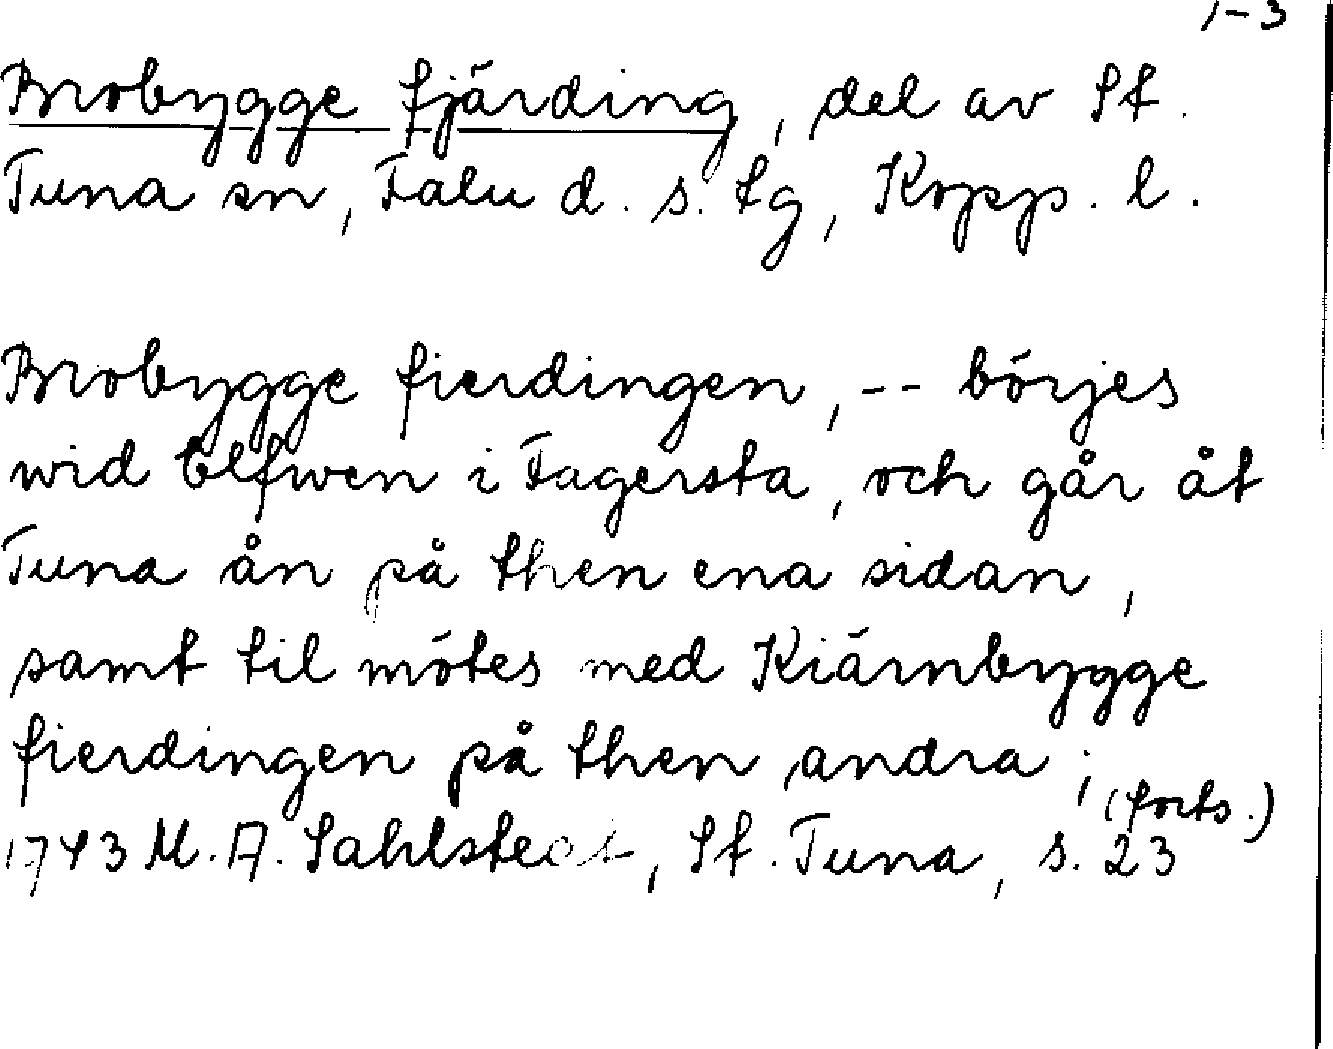 1-3
Brobygge fjärding, del av St.
Tuna sn, Falu d. s. tg, Kopp. l.
Brobygge fierdingen, -- börjes
wid Elfwen i Fagersta, och går åt
Tuna ån på then ena sidan,
samt til mötes med Kiärnbygge
fierdingen på then andra; (forts.)
1743 M. A. Sahlstedt, St. Tuna, s. 23